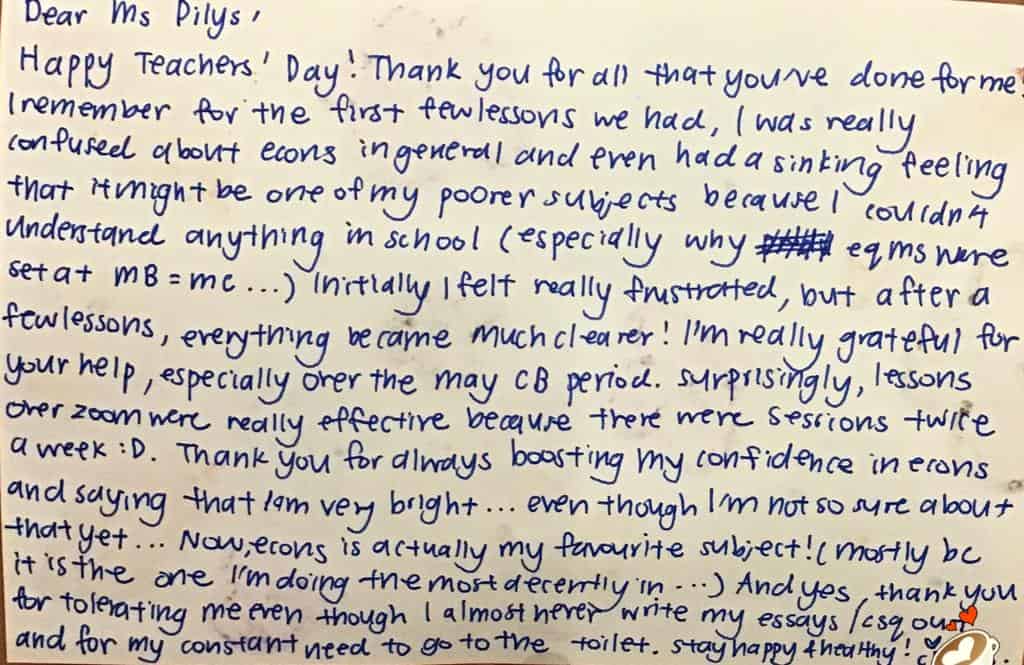 Dear Ms Pilys,
Happy Teachers' Day! Thank you for all that you've done for me!
I remember for the first few lessons we had, I was really
confused about econs in general and even had a sinking feeling
that it might be one of my poorer subjects because I couldn't
understand anything in school (especially why eqms were
set at MB = MC ...) Initially I felt really frustrated, but after a
few lessons, everything became much clearer! I'm really grateful for
your help, especially over the may CB period. Surprisingly, lessons
over zoom were really effective because there were sessions twice
a week :D. Thank you for always boosting my confidence in econs
and saying that I am very bright... even though I'm not so sure about
that yet... Now, econs is actually my favourite subject! (mostly bc
it is the one I'm doing the most decently in ...) And yes, thank you
for tolerating me even though I almost never write my essays / csq out
and for my constant need to go to the toilet. stay happy & healthy!